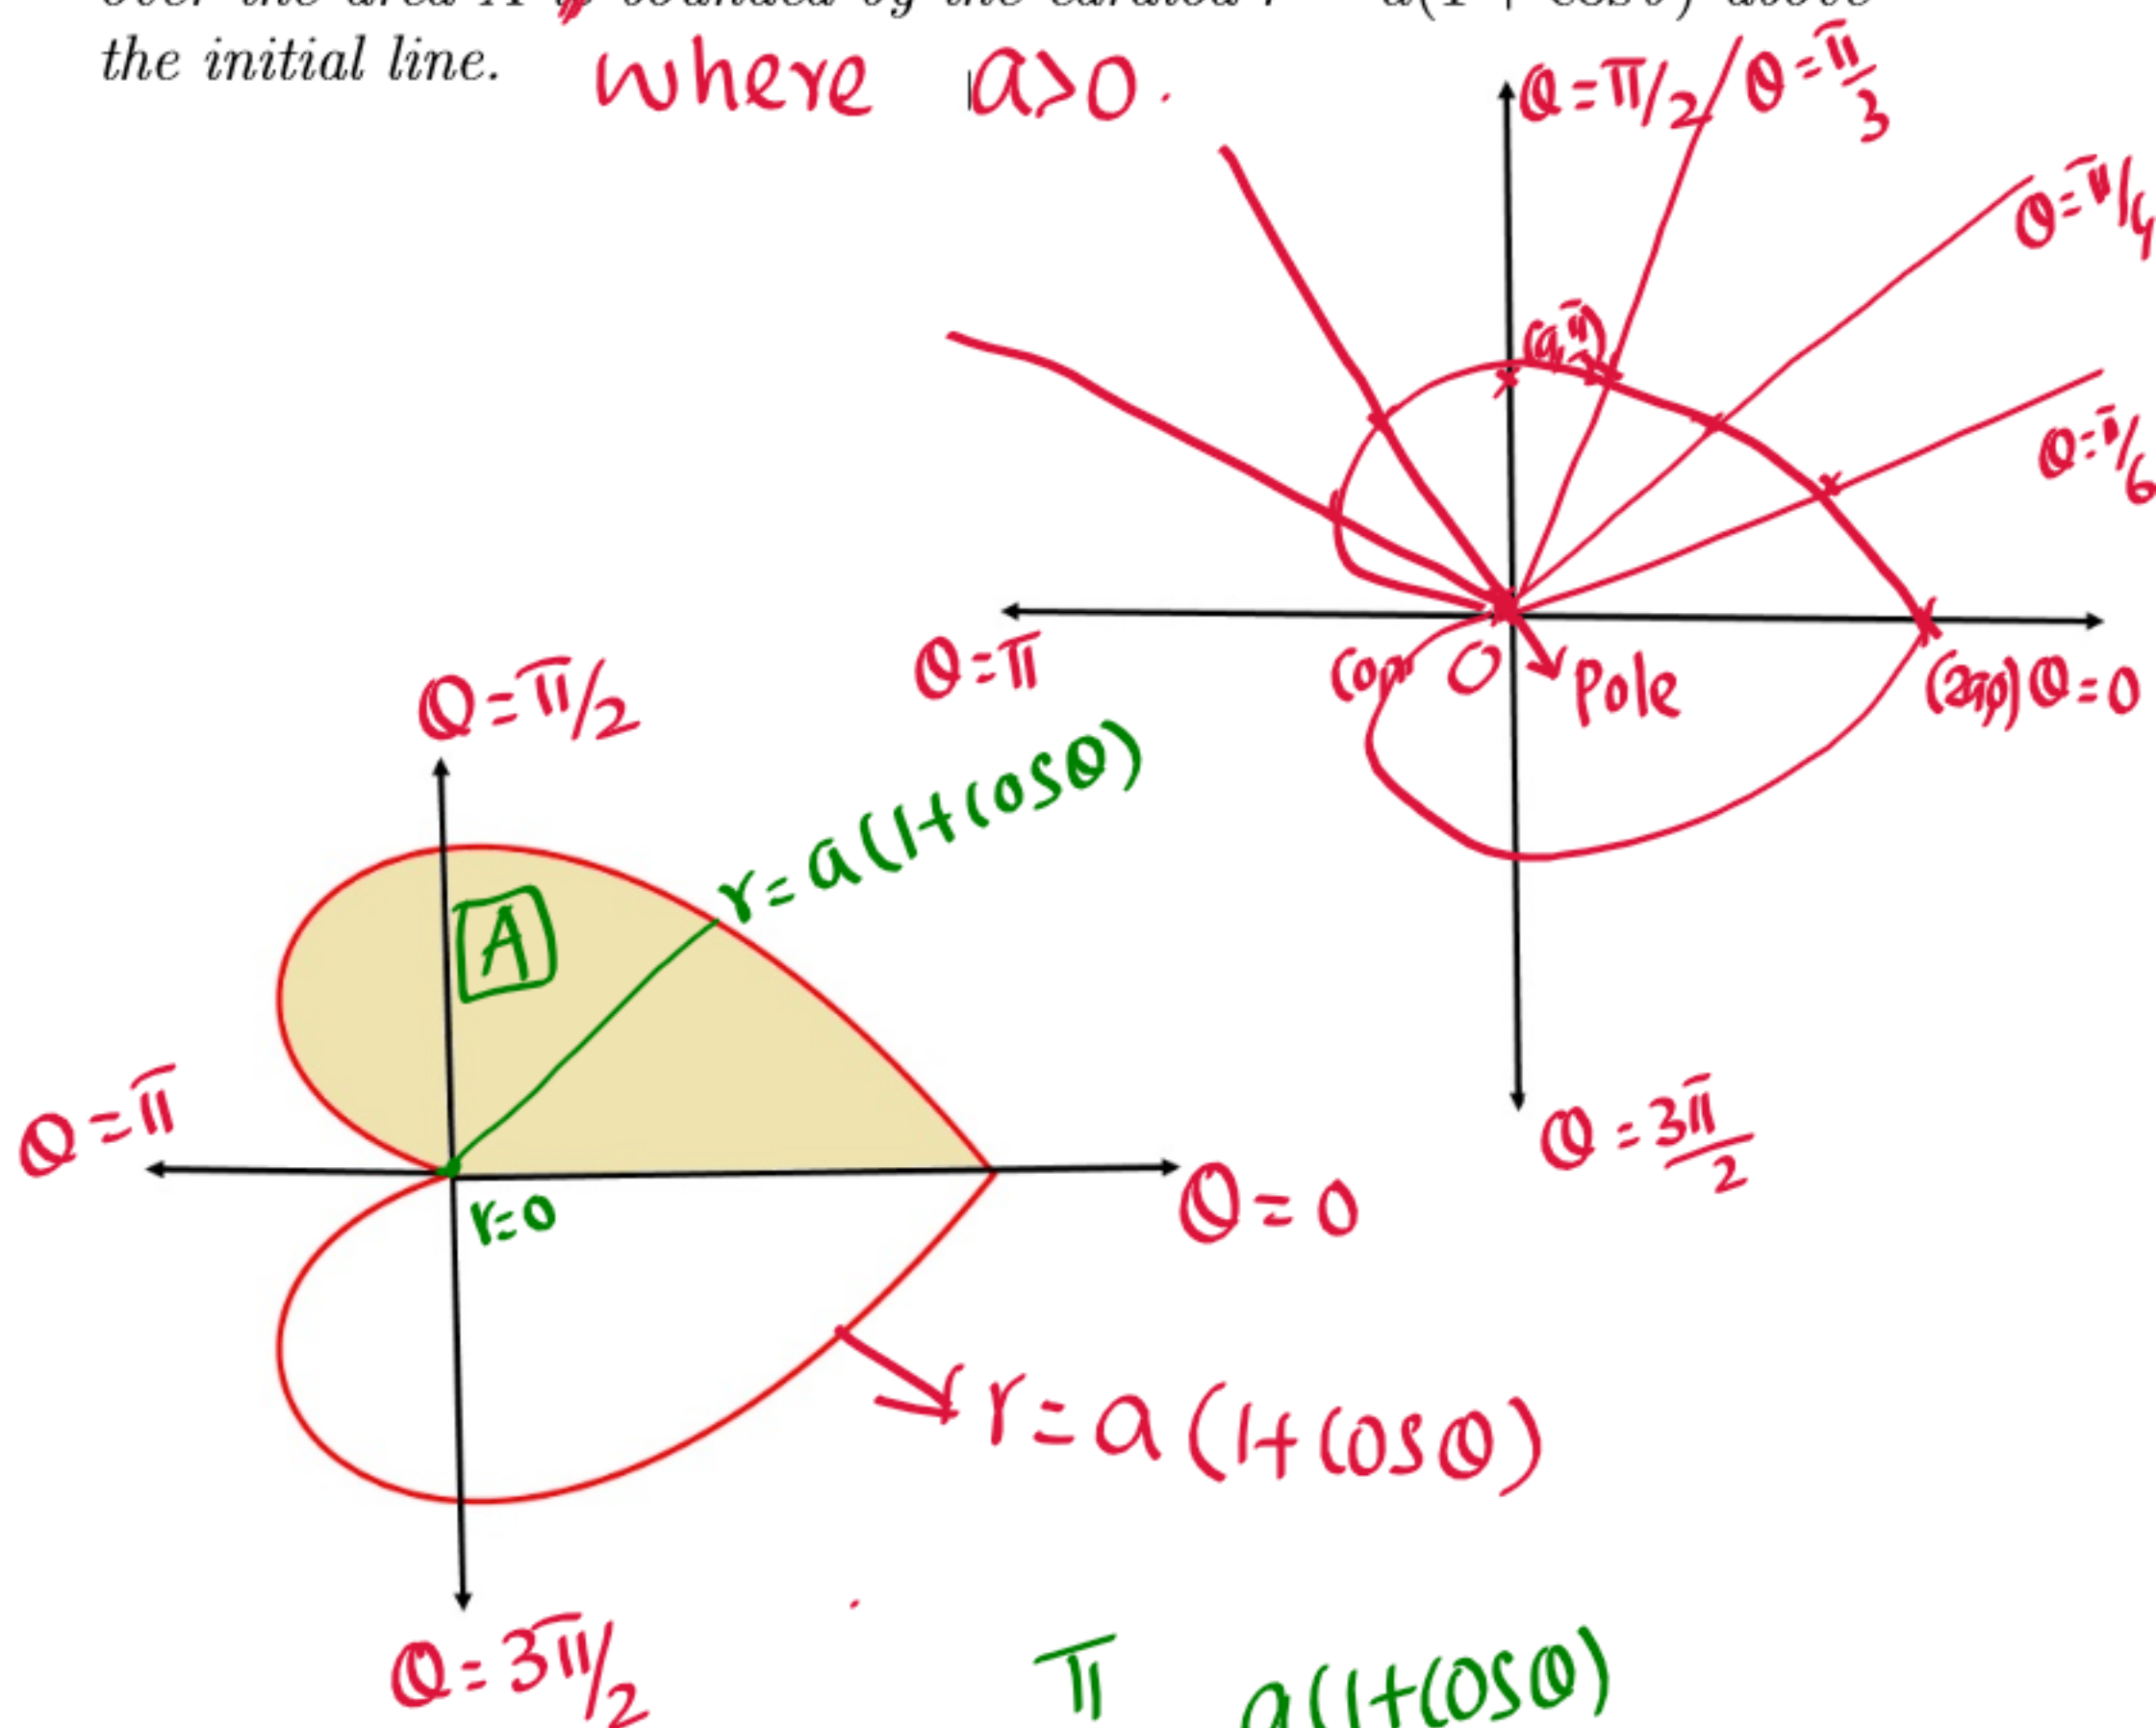 the initial line. where a>0.
θ=π/2
θ=π/3
θ=π/4
θ=π/6
θ=π
O
Pole
(2a,0) θ=0
θ=3π/2
θ=π/2
r=a(1+cosθ)
A
θ=π
r=0
θ=0
r=a(1+cosθ)
θ=3π/2
π a(1+cosθ)